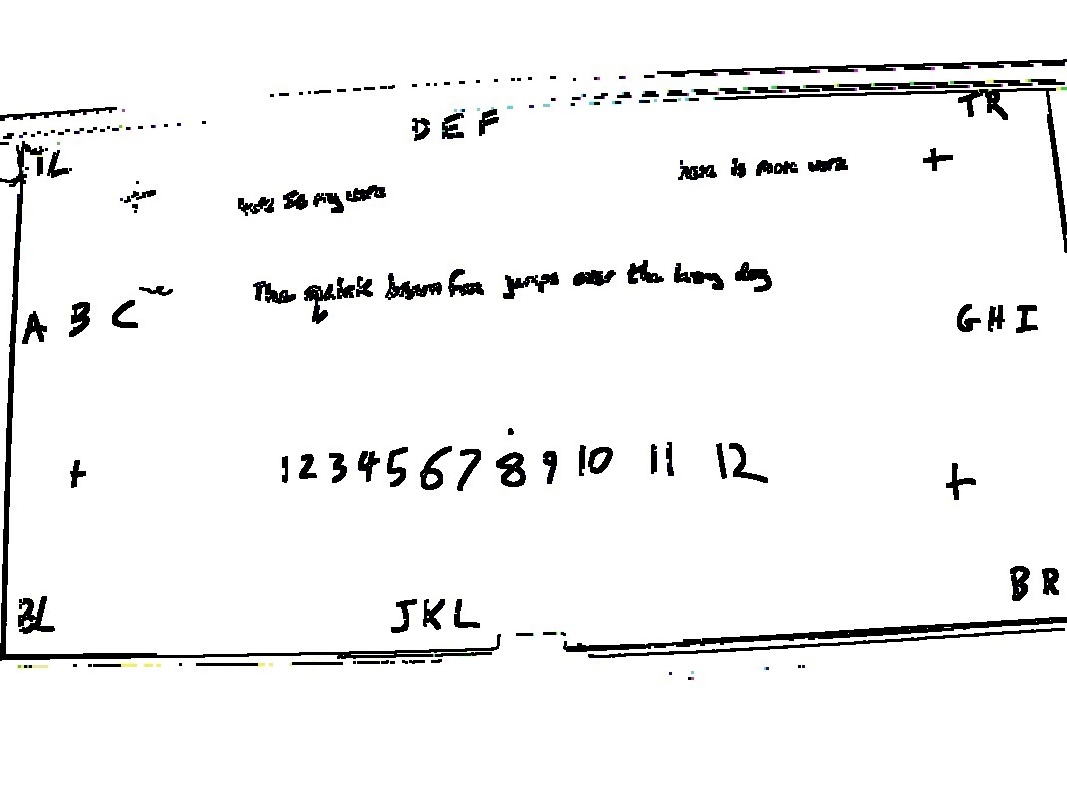 TR
DEF
TL
here is more work
+
+
here is my work
The quick brown fox jumps over the lazy dog
A B C
GHI
1 2 3 4 5 6 7 8 9 10 11 12
+
+
BR
BL
JKL